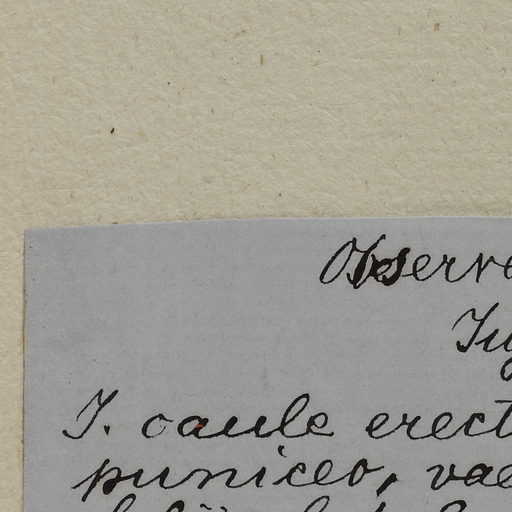 Observe
Ju
J. caule erect
puniceo, vae